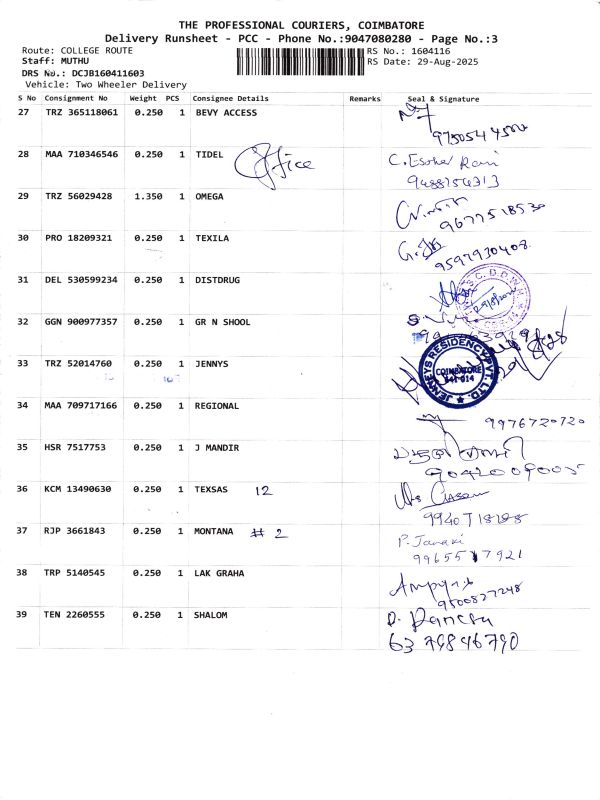 THE PROFESSIONAL COURIERS, COIMBATORE
Delivery Runsheet - PCC - Phone No.:9047080280 - Page No.:3
Route: COLLEGE ROUTE RS No.: 1604116
Staff: MUTHU RS Date: 29-Aug-2025
DRS No.: DCJB160411603
Vehicle: Two Wheeler Delivery
S No Consignment No Weight PCS Consignee Details Remarks Seal & Signature
27 TRZ 365118061 0.250 1 BEVY ACCESS
28 MAA 710346546 0.250 1 TIDEL Office C. Esther Rani
29 TRZ 56029428 1.350 1 OMEGA
9677518530
30 PRO 18209321 0.250 1 TEXILA
9597930408
31 DEL 530599234 0.250 1 DISTDRUG
32 GGN 900977357 0.250 1 GR N SHOOL
33 TRZ 52014760 0.250 1 JENNYS
JENNEYS RESIDENCY PVT. LTD.
COIMBATORE
641 014
34 MAA 709717166 0.250 1 REGIONAL
9976720720
35 HSR 7517753 0.250 1 J MANDIR
9042009005
36 KCM 13490630 0.250 1 TEXSAS 12
37 RJP 3661843 0.250 1 MONTANA # 2
P. Janaki
38 TRP 5140545 0.250 1 LAK GRAHA
9500827248
39 TEN 2260555 0.250 1 SHALOM
6379846790